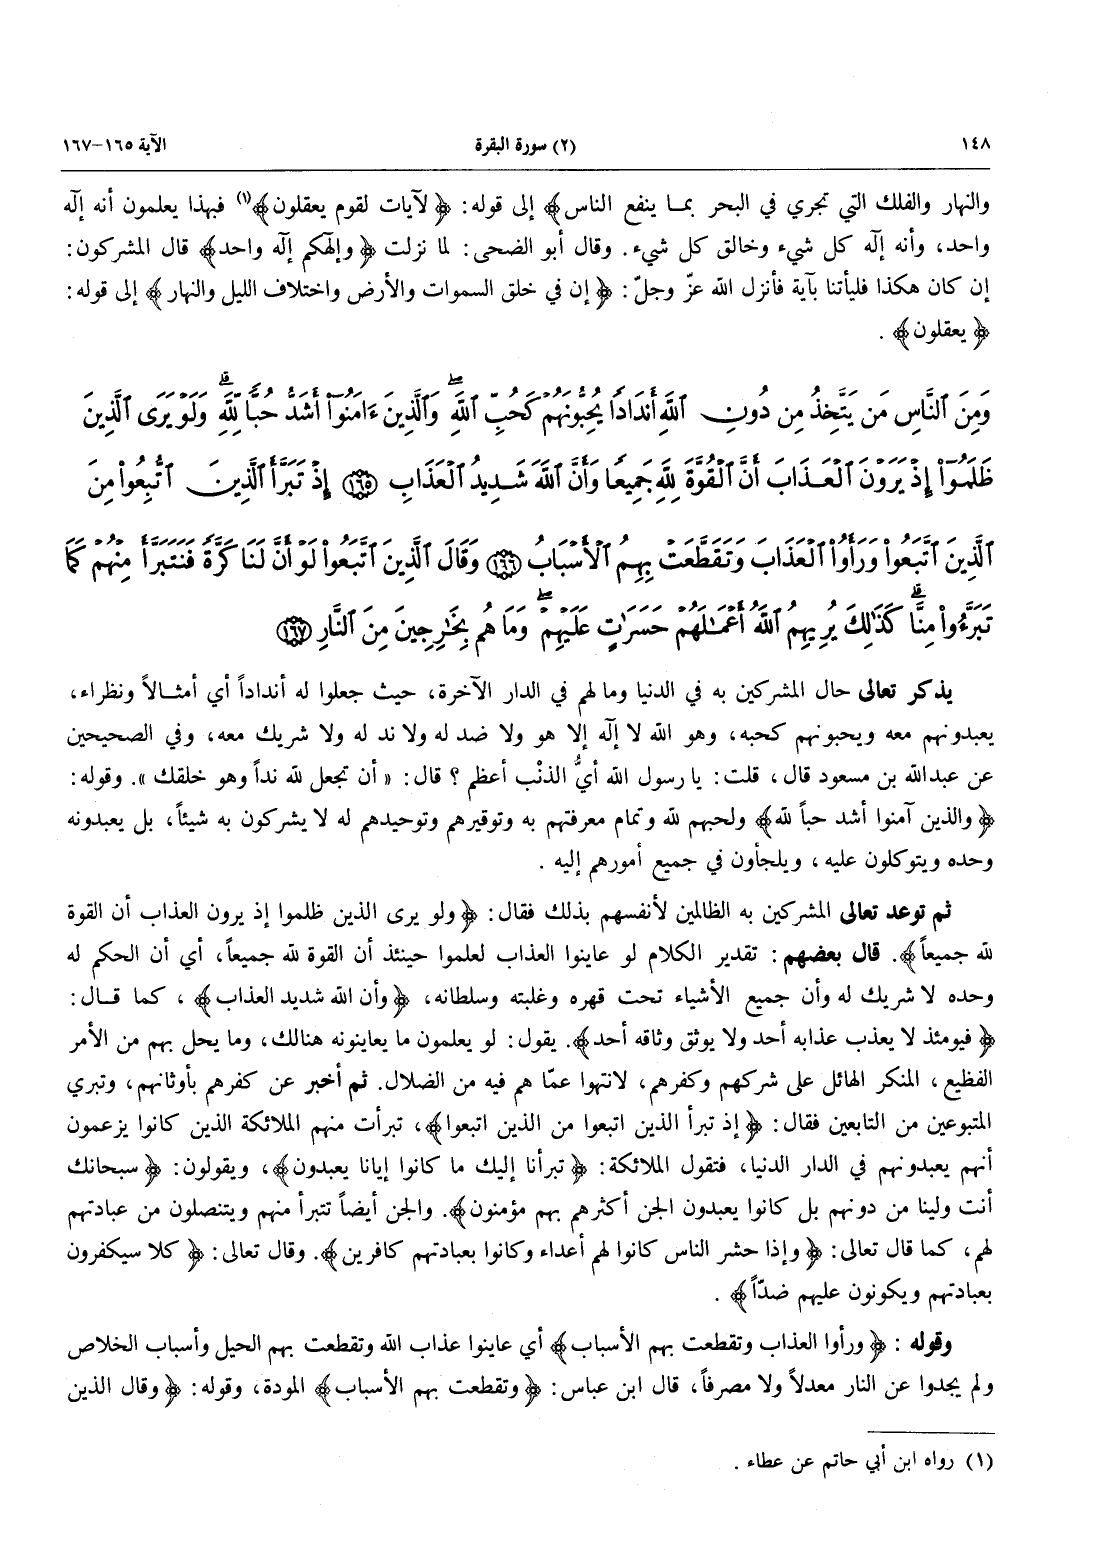 ١٤٨ (٢) سورة البقرة الآية ١٦٥-١٦٧
والنهار والفلك التي تجري في البحر بما ينفع الناس﴾ إلى قوله: ﴿لآيات لقوم يعقلون﴾(١) فبهذا يعلمون أنه إلٓه
واحد، وأنه إلٓه كل شيء وخالق كل شيء. وقال أبو الضحى: لما نزلت ﴿وإلٓهكم إلٓه واحد﴾ قال المشركون:
إن كان هكذا فليأتنا بآية فأنزل الله عزّ وجلّ: ﴿إن في خلق السموات والأرض واختلاف الليل والنهار﴾ إلى قوله:
﴿يعقلون﴾.
وَمِنَ ٱلنَّاسِ مَن يَتَّخِذُ مِن دُونِ ٱللَّهِ أَندَادًا يُحِبُّونَهُمْ كَحُبِّ ٱللَّهِ ۖ وَٱلَّذِينَ ءَامَنُوٓا۟ أَشَدُّ حُبًّا لِّلَّهِ ۗ وَلَوْ يَرَى ٱلَّذِينَ
ظَلَمُوٓا۟ إِذْ يَرَوْنَ ٱلْعَذَابَ أَنَّ ٱلْقُوَّةَ لِلَّهِ جَمِيعًا وَأَنَّ ٱللَّهَ شَدِيدُ ٱلْعَذَابِ ﴿١٦٥﴾ إِذْ تَبَرَّأَ ٱلَّذِينَ ٱتُّبِعُوا۟ مِنَ
ٱلَّذِينَ ٱتَّبَعُوا۟ وَرَأَوُا۟ ٱلْعَذَابَ وَتَقَطَّعَتْ بِهِمُ ٱلْأَسْبَابُ ﴿١٦٦﴾ وَقَالَ ٱلَّذِينَ ٱتَّبَعُوا۟ لَوْ أَنَّ لَنَا كَرَّةً فَنَتَبَرَّأَ مِنْهُمْ كَمَا
تَبَرَّءُوا۟ مِنَّا ۗ كَذَٰلِكَ يُرِيهِمُ ٱللَّهُ أَعْمَٰلَهُمْ حَسَرَٰتٍ عَلَيْهِمْ ۖ وَمَا هُم بِخَٰرِجِينَ مِنَ ٱلنَّارِ ﴿١٦٧﴾
يذكر تعالى حال المشركين به في الدنيا وما لهم في الدار الآخرة، حيث جعلوا له أنداداً أي أمثالاً ونظراء،
يعبدونهم معه ويحبونهم كحبه، وهو الله لا إلٓه إلا هو ولا ضد له ولا ند له ولا شريك معه، وفي الصحيحين
عن عبدالله بن مسعود قال، قلت: يا رسول الله أيُّ الذنْب أعظم؟ قال: «أن تجعل لله نداً وهو خلقك». وقوله:
﴿والذين آمنوا أشد حباً لله﴾ ولحبهم لله وتمام معرفتهم به وتوقيرهم وتوحيدهم له لا يشركون به شيئاً، بل يعبدونه
وحده ويتوكلون عليه، ويلجأون في جميع أمورهم إليه.
ثم توعد تعالى المشركين به الظالمين لأنفسهم بذلك فقال: ﴿ولو يرى الذين ظلموا إذ يرون العذاب أن القوة
لله جميعاً﴾. قال بعضهم: تقدير الكلام لو عاينوا العذاب لعلموا حينئذ أن القوة لله جميعاً، أي أن الحكم له
وحده لا شريك له وأن جميع الأشياء تحت قهره وغلبته وسلطانه، ﴿وأن الله شديد العذاب﴾، كما قال:
﴿فيومئذ لا يعذب عذابه أحد ولا يوثق وثاقه أحد﴾. يقول: لو يعلمون ما يعاينونه هنالك، وما يحل بهم من الأمر
الفظيع، المنكر الهائل على شركهم وكفرهم، لانتهوا عمّا هم فيه من الضلال. ثم أخبر عن كفرهم بأوثانهم، وتبري
المتبوعين من التابعين فقال: ﴿إذ تبرأ الذين اتبعوا من الذين اتبعوا﴾، تبرأت منهم الملائكة الذين كانوا يزعمون
أنهم يعبدونهم في الدار الدنيا، فتقول الملائكة: ﴿تبرأنا إليك ما كانوا إيانا يعبدون﴾، ويقولون: ﴿سبحانك
أنت ولينا من دونهم بل كانوا يعبدون الجن أكثرهم بهم مؤمنون﴾. والجن أيضاً تتبرأ منهم ويتنصلون من عبادتهم
لهم، كما قال تعالى: ﴿وإذا حشر الناس كانوا لهم أعداء وكانوا بعبادتهم كافرين﴾. وقال تعالى: ﴿كلا سيكفرون
بعبادتهم ويكونون عليهم ضدّاً﴾.
وقوله: ﴿ورأوا العذاب وتقطعت بهم الأسباب﴾ أي عاينوا عذاب الله وتقطعت بهم الحيل وأسباب الخلاص
ولم يجدوا عن النار معدلاً ولا مصرفاً، قال ابن عباس: ﴿وتقطعت بهم الأسباب﴾ المودة، وقوله: ﴿وقال الذين
(١) رواه ابن أبي حاتم عن عطاء.